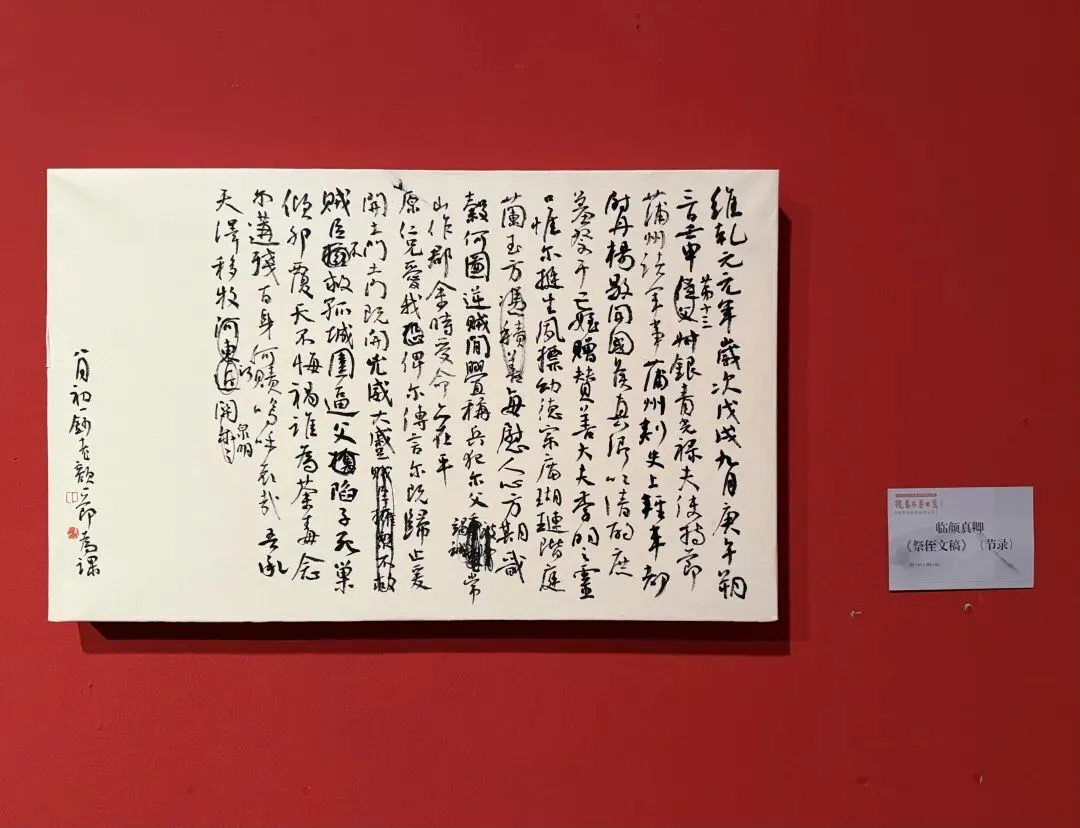 維乾元元年歲次戊戌九月庚午朔
三日壬申第十三從父叔銀青光祿夫使持節
蒲州諸軍事蒲州刺史上輕車都
尉丹楊縣開國侯真卿以清酌庶
羞祭于亡姪贈贊善大夫季明之靈
曰惟尔挺生夙標幼德宗廟瑚璉階庭
蘭玉方憑積善每慰人心方期戩
穀何圖逆賊閒釁稱兵犯尔父竭誠常
山作郡余時受命亦在平
原仁兄愛我恐俾尔傳言尔既歸止爰
開土門土門既開兇威大蹙賊臣擁眾不救
賊臣不救孤城圍逼父陷子死巢
傾卵覆天不悔禍誰為荼毒念
尔遘殘百身何贖嗚呼哀哉吾承
天澤移牧河東近河關泉明尔
八月初一鈔老顏一節為課
临颜真卿
《祭侄文稿》（节录）